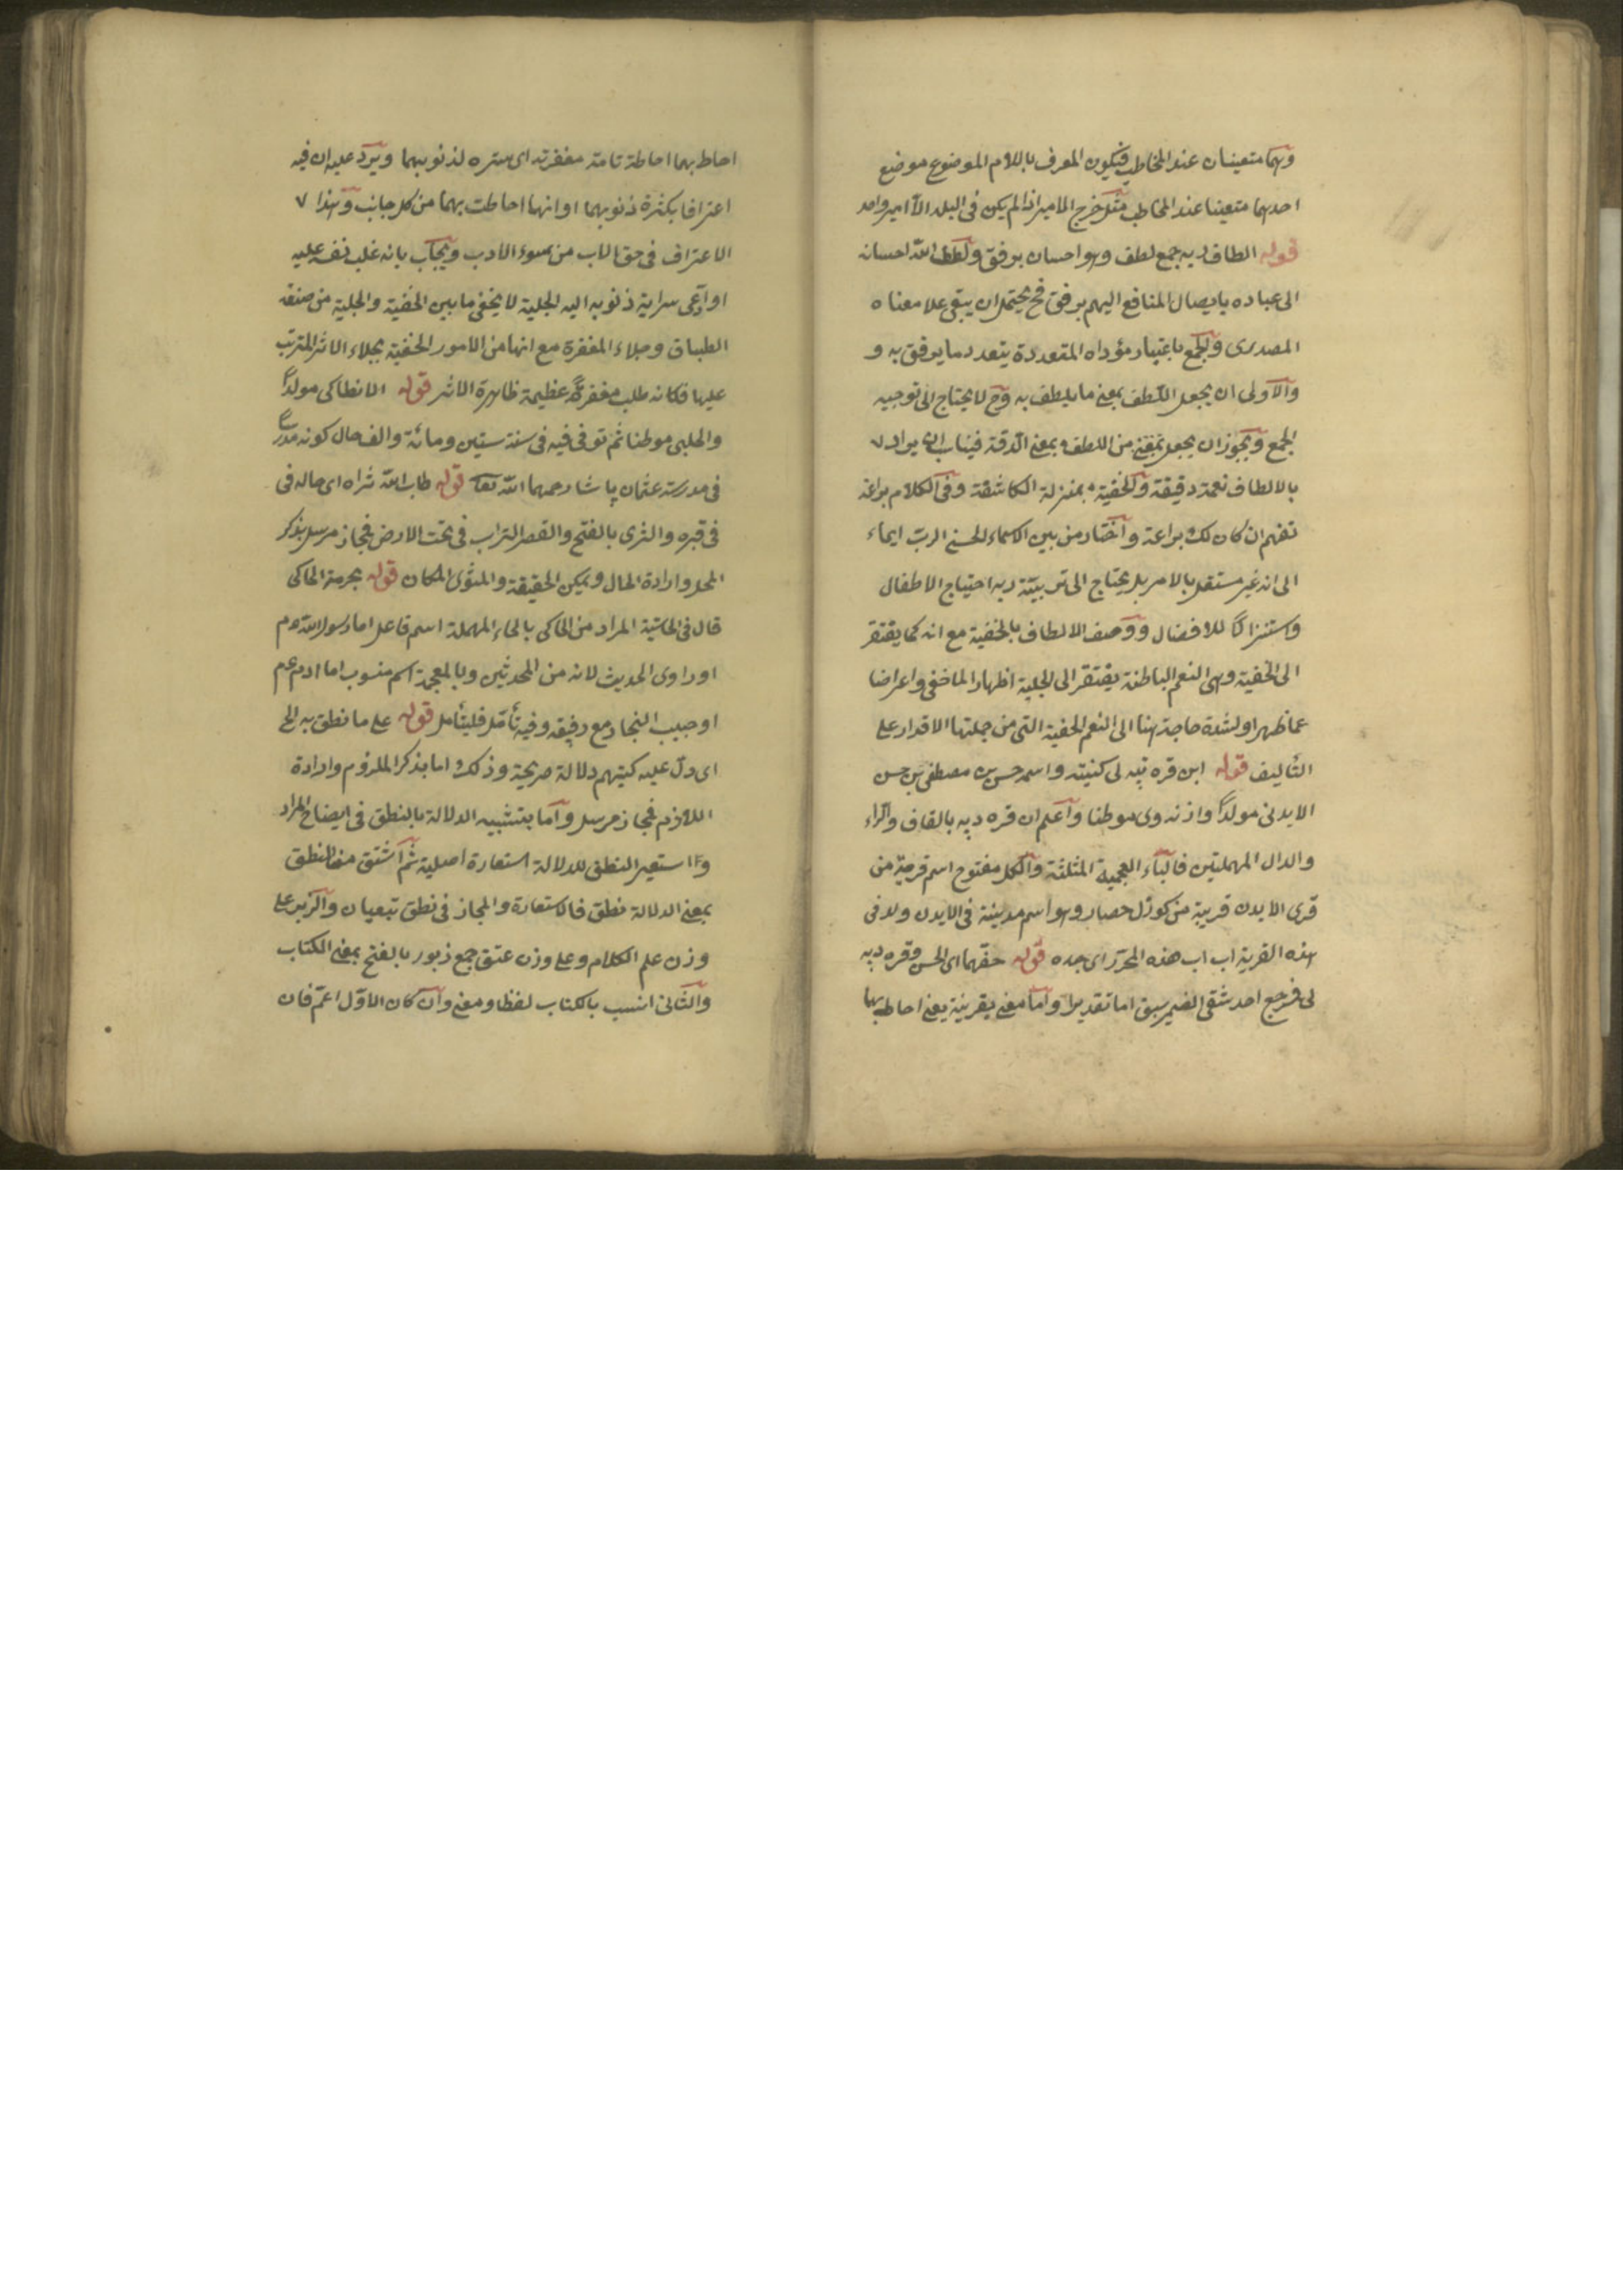 وهما متعينان عند المخاطب فيكون المعرف باللام الموضوع موضع
احدهما متعينا عند المخاطب مثل خرج الامير اذا لم يكن في البلد الا امير واحد
قوله الطاف ربه جمع لطف وهو احسان برفق ولطف الله احسانه
الى عباده بايصال المنافع اليهم برفق فح يحتمل ان يبقى علا معناه
المصدرى والجمع باعتبار مؤداه المتعددة يتعدد ما يرفق به و
والاولى ان يجعل اللطف بمعنى ما يلطف به وح لا يحتاج الى توجيه
الجمع ويجوز ان يجعل بمعنى من اللطف بمعنى الدقة فيناسب ان يراد
بالالطاف نعمة دقيقة والخفية بمنزلة الكاشفة وفى الكلام براعة
تفهم ان كان لك براعة واختار من بين الاسماء الحسنى الرب ايماء
الى انه غير مستقل بالامر بل يحتاج الى تربيتة ربه احتياج الاطفال
واستنزالا للافضال ووصف الالطاف بالخفية مع انه كما يفتقر
الى الخفية وهى النعم الباطنة يفتقر الى الجلية اظهارا لما خفى واعراضا
عما ظهر او لشدة حاجة هنا الى النعم الخفية التى من جملتها الاقدار على
التأليف قوله ابن قره تپه لى كنيته واسمه حسن بن مصطفى بن حسن
الايدنى مولدا واذنه وى موطنا واعلم ان قره دپه بالقاف والراء
والدال المهملتين فالباء العجمية المثلثة والكل مفتوح اسم قرية من
قرى الايدن قريبة من كوزل حصار وهو اسم مدينة فى الايدن ولد فى
هذه القرية اب اب هذه المحرر اى جده قوله حفهما اى الحسن وقره دپه
لى فرجع احد شقى الضمير سبق اما تقديرا واما معنى بقرينة يعنى احاط بهما
احاط بهما احاطة تامة مغفرته اى ستره لذنوبهما ويرد عليه ان فيه
اعترافا بكثرة ذنوبهما او انها احاطت بهما من كل جانب وهذا
الاعتراف فى حق الاب من سوء الادب ويجاب بانه غلب نفسه عليه
او ادعى سراية ذنوبه اليه الجلية لا يخفى ما بين الخفية والجلية من صنعة
الطباق وجلاء المغفرة مع انها من الامور الخفية بجلاء الاثر المترتب
عليها فكانه طلب مغفرة عظيمة ظاهرة الاثر قوله الانطاكى مولدا
والحلبى موطنا ثم توفى فيه فى سنة ستين ومائة والف حال كونه مدرسا
فى مدرسة عثمان پاشا رحمهما الله تعا قوله طاب الله ثراه اى حاله فى
فى قبره والثرى بالفتح والقصر التراب فى تحت الارض فمجاز مرسل بذكر
المحل وارادة الحال ويمكن الحقيقة والمثوى المكان قوله بحرمة الحاكى
قال فى الحاشية المراد من الحاكى بالحاء المهملة اسم فاعل اما رسول الله صم
او راوى الحديث لانه من المحدثين وبالمعجمة اسم منسوب اما ادم عم
او حبيب النجار مع رفيقه وفيه تأمل فليتأمل قوله على ما نطق به الخ
اى دل عليه كيتهم دلالة صريحة وذلك اما بذكر الملزوم وارادة
اللازم فمجاز مرسل واما بتشبيه الدلالة بالنطق فى ايضاح المراد
واستعير النطق للدلالة استعارة اصلية ثم اشتق من النطق
بمعنى الدلالة نطق فالاستعارة والمجاز فى نطق تبعيان والزبر على
وزن علم الكلام وعلى وزن عتق جمع زبور بالفتح بمعنى الكتاب
والثانى انسب بالكتاب لفظا ومعنى وان كان الاول اعم فان